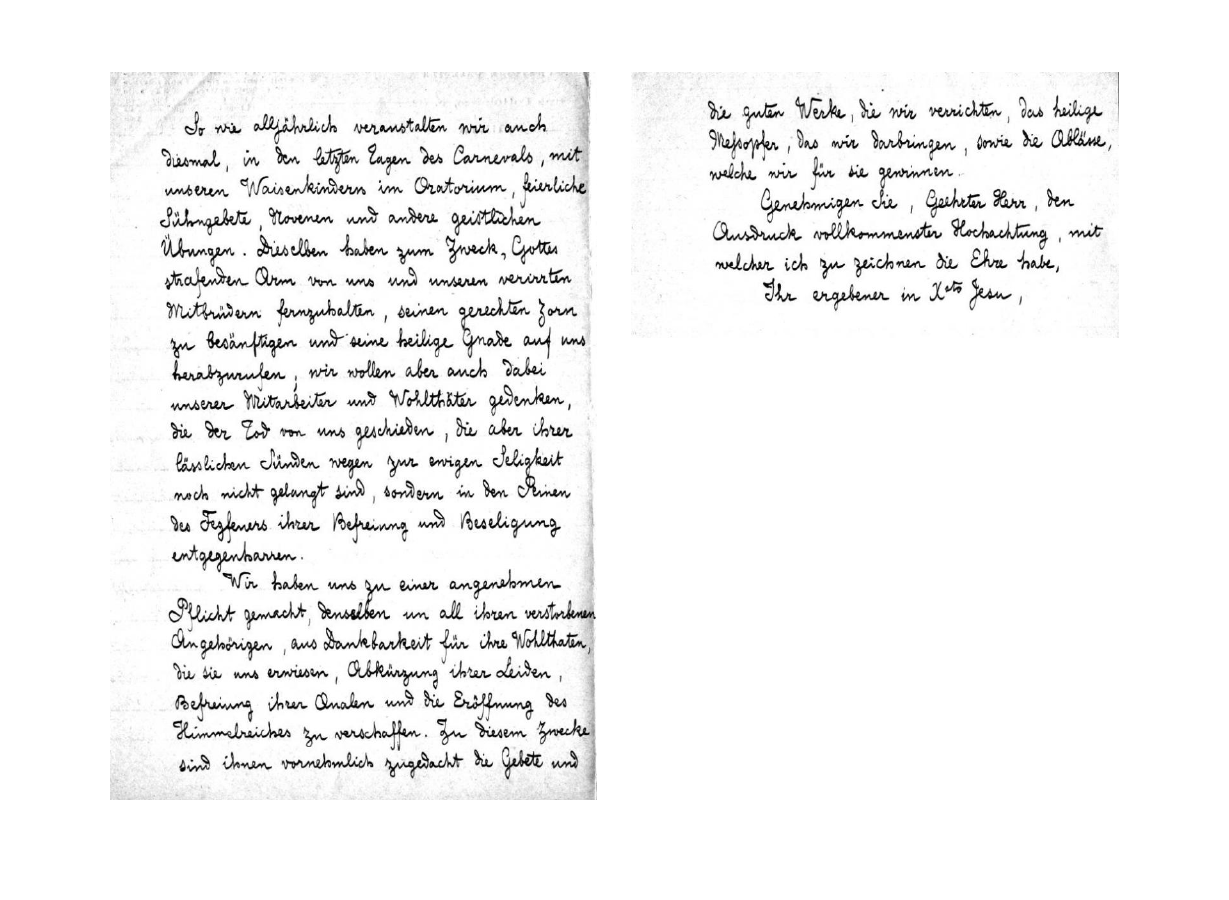 So wie alljährlich veranstalten wir auch
diesmal, in den letzten Tagen des Carnevals, mit
unseren Waisenkindern im Oratorium, feierliche
Sühngebete, Novenen und andere geistlichen
Übungen. Dieselben haben zum Zweck, Gottes
strafenden Arm von uns und unseren verirrten
Mitbrüdern fernzuhalten, seinen gerechten Zorn
zu besänftigen und seine heilige Gnade auf uns
herabzurufen, wir wollen aber auch dabei
unserer Mitarbeiter und Wohlthäter gedenken,
die der Tod von uns geschieden, die aber ihrer
lässlichen Sünden wegen zur ewigen Seligkeit
noch nicht gelangt sind, sondern in den Peinen
des Fegfeuers ihrer Befreiung und Beseligung
entgegenharren.
Wir haben uns zu einer angenehmen
Pflicht gemacht, denselben un all ihren verstorbenen
Angehörigen, aus Dankbarkeit für ihre Wohlthaten,
die sie uns erwiesen, Abkürzung ihrer Leiden,
Befreiung ihrer Qualen und die Eröffnung des
Himmelreiches zu verschaffen. Zu diesem Zwecke
sind ihnen vornehmlich zugedacht die Gebete und
die guten Werke, die wir verrichten, das heilige
Meßopfer, das wir darbringen, sowie die Ablässe,
welche wir für sie gewinnen.
Genehmigen Sie, Geehrter Herr, den
Ausdruck vollkommenster Hochachtung, mit
welcher ich zu zeichnen die Ehre habe,
Ihr ergebener in Xsto Jesu,